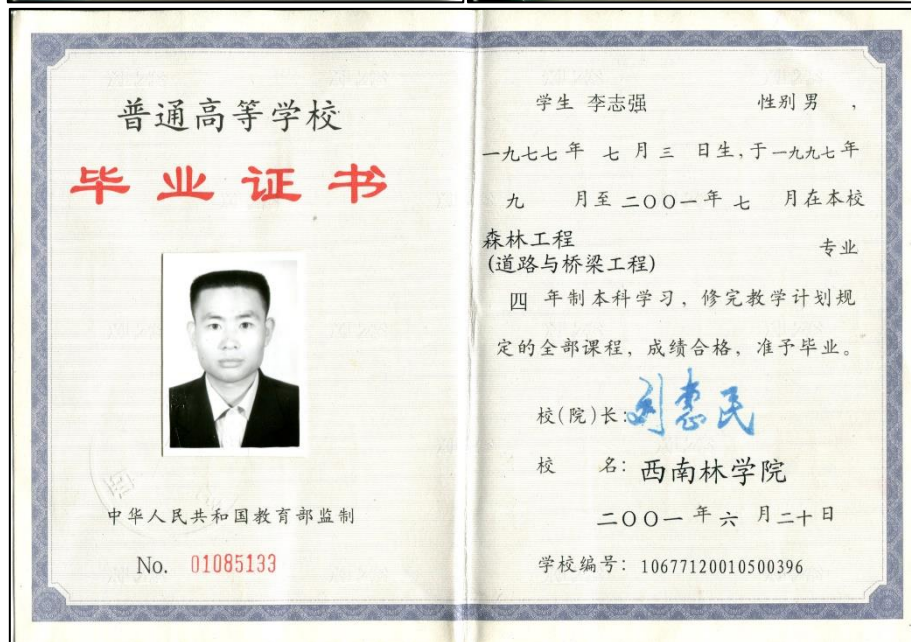 普通高等学校
毕业证书
中华人民共和国教育部监制
No. 01085133
学生 李志强 性别 男 ,
一九七七年 七 月 三 日生,于一九九七年
九 月至 二〇〇一年 七 月在本校
森林工程
(道路与桥梁工程) 专业
四 年制本科学习，修完教学计划规
定的全部课程，成绩合格，准予毕业。
校(院)长: 刘惠民
校 名: 西南林学院
二〇〇一 年 六 月二十日
学校编号: 10677120010500396